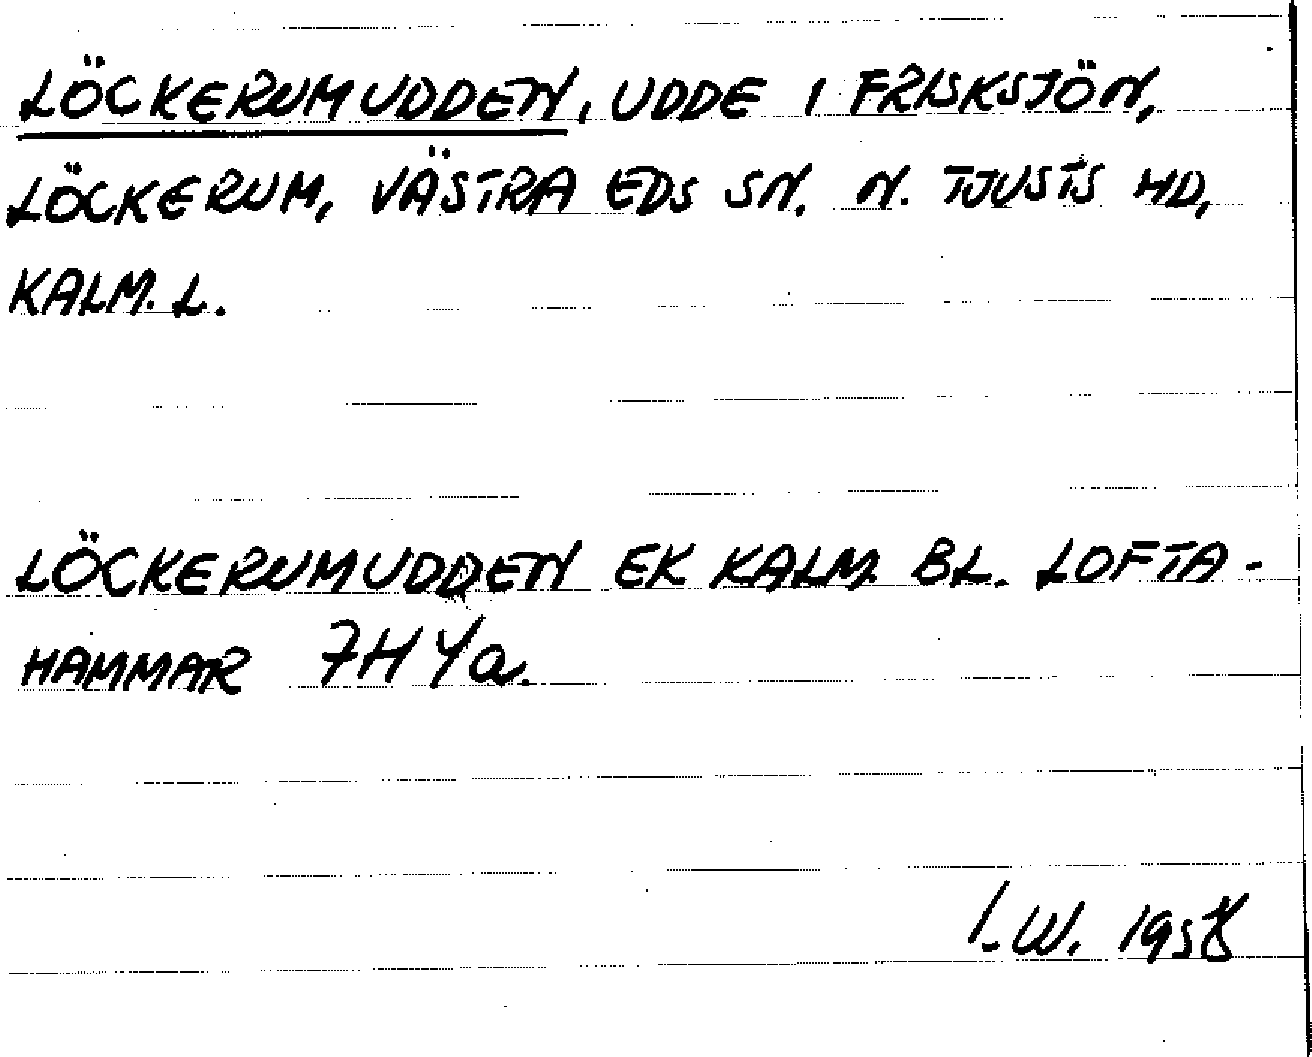 LÖCKERUMUDDEN, UDDE I FRISKSJÖN,
LÖCKERUM, VÄSTRA EDS SN. N. TJUSTS HD,
KALM. L.
LÖCKERUMUDDEN EK KALM. BL. LOFTA-
HAMMAR 7H Ya.
I.W. 1958